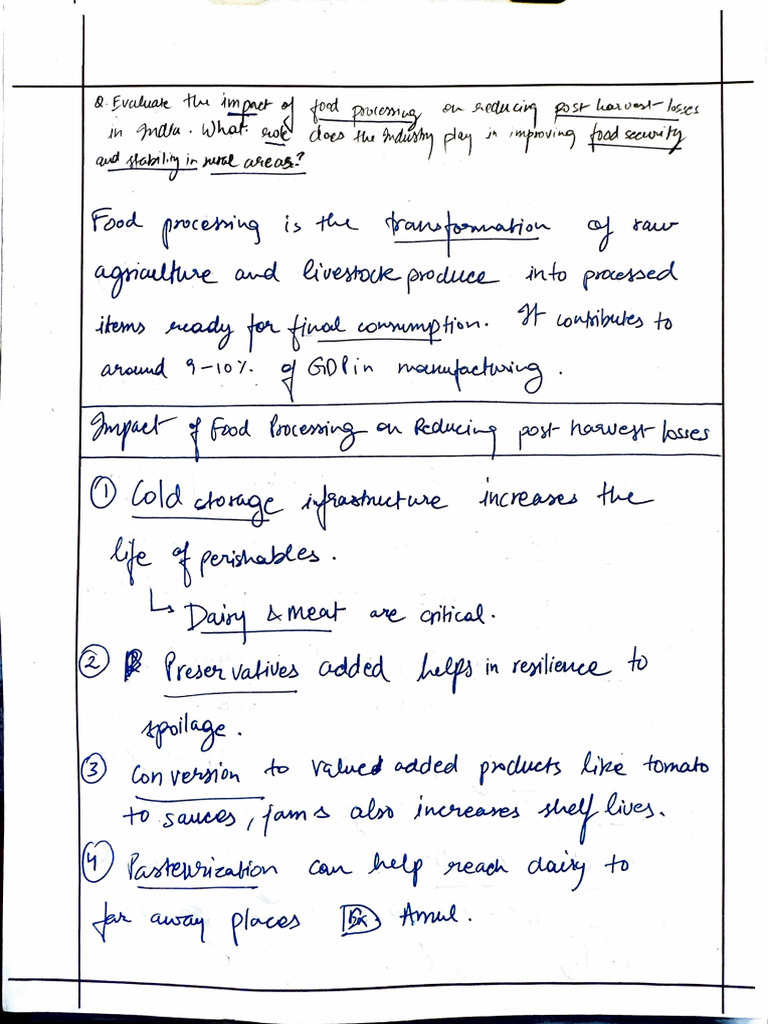 Q. Evaluate the impact of food processing on reducing post harvest losses
in India. What role does the Industry play in improving food security
and stability in rural areas?
Food processing is the transformation of raw
agriculture and livestock produce into processed
items ready for final consumption. It contributes to
around 9-10% of GDP in manufacturing.
Impact of Food Processing on Reducing post harvest losses
① Cold storage infrastructure increases the
life of perishables.
↳ Dairy & meat are critical.
② Preservatives added helps in resilience to
spoilage.
③ Conversion to valued added products like tomato
to sauces, jams also increases shelf lives.
④ Pasteurization can help reach dairy to
far away places Ex Amul.